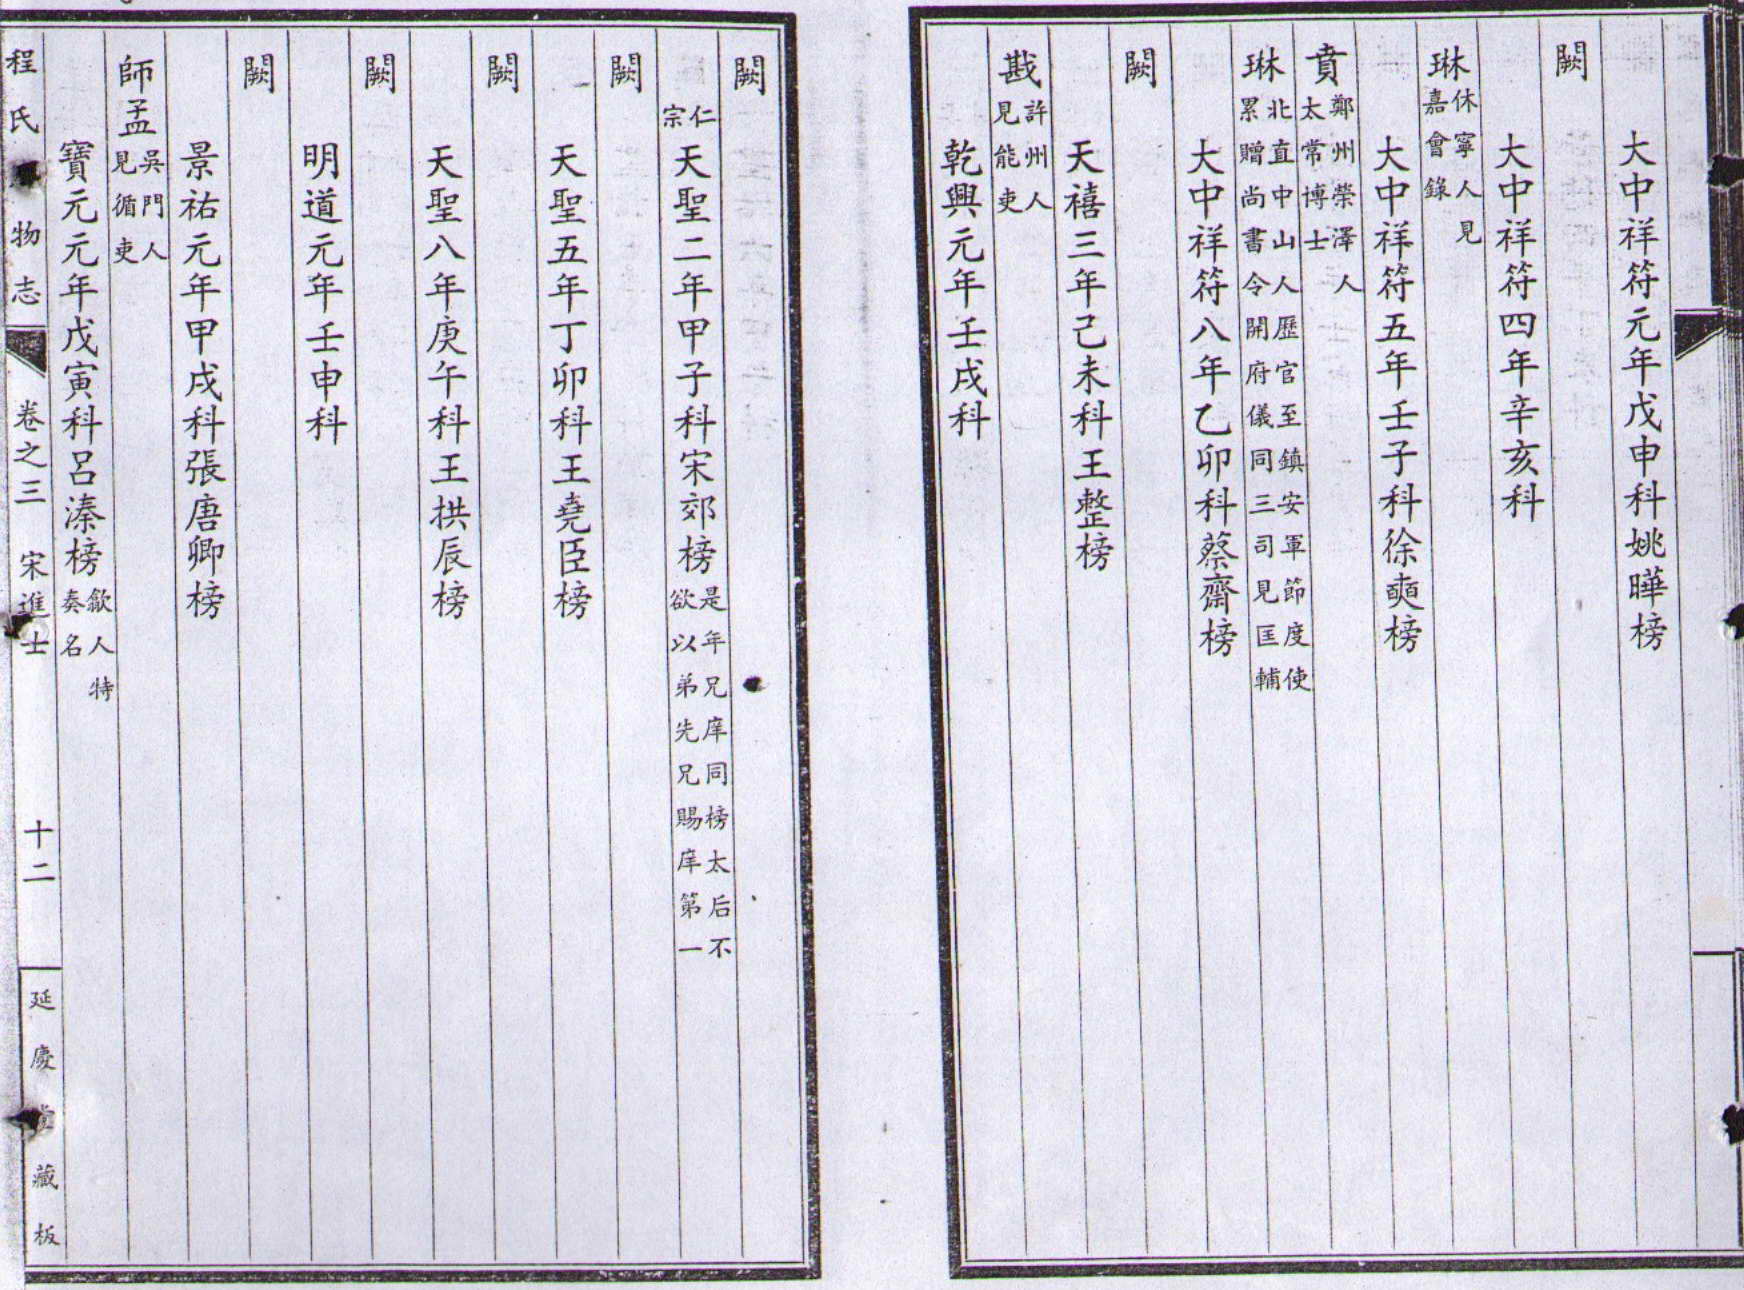 大中祥符元年戊申科姚曄榜
闕
大中祥符四年辛亥科
琳休寧人見嘉會錄
大中祥符五年壬子科徐奭榜
賁鄭州榮澤人太常博士
琳北直中山人歷官至鎮安軍節度使累贈尚書令開府儀同三司見匡輔
大中祥符八年乙卯科蔡齋榜
闕
天禧三年己未科王整榜
戡許州人見能吏
乾興元年壬戌科
闕
仁宗天聖二年甲子科宋郊榜是年兄庠同榜太后不欲以弟先兄賜庠第一
闕
天聖五年丁卯科王堯臣榜
闕
天聖八年庚午科王拱辰榜
闕
明道元年壬申科
闕
景祐元年甲戌科張唐卿榜
師孟吳門人見循吏
寶元元年戊寅科呂溱榜歙人特奏名
程氏物志
卷之三 宋進士
十二
延慶堂藏板